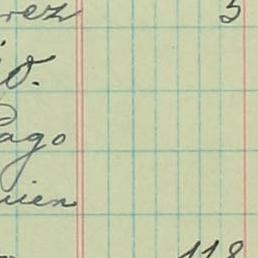 rez 5
io.
Pago
uien
118